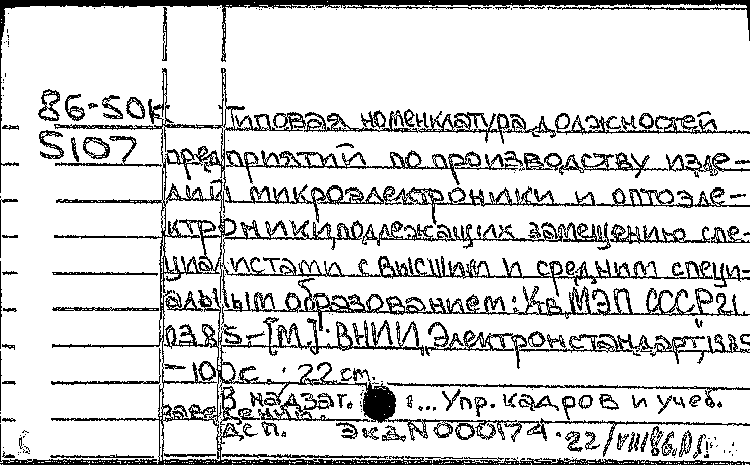 86-50к Типовая номенклатура должностей
5107 предприятий по производству изде-
лий микроэлектроники и оптоэле-
ктроники, подлежащих замещению спе-
циалистами с высшим и средним специ-
альным образованием: Утв. МЭП СССР 21.
03.85 - [М.]: ВНИИ "Электронстандарт", 1985
- 100с.; 22 cm.
В надзаг.: ... Упр. кадров и учеб.
заведений.
ДСП. Экз. N 000174. 22/VIII86.